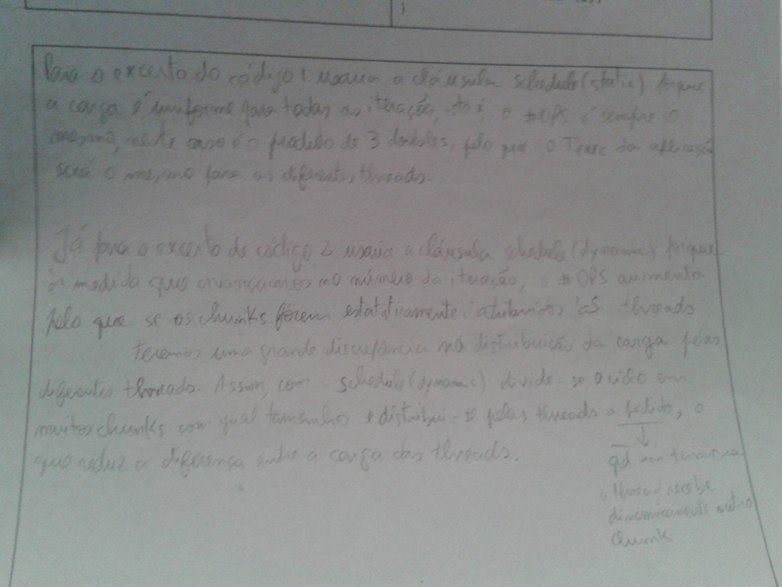 Para o excerto do código 1 usaria a cláusula schedule(static) porque
a carga é uniforme para todas as iteração, isto é, o #OPS é sempre o
mesmo, neste caso é o produto de 3 doubles, pelo que o Texec da aplicação
será o mesmo para as diferentes threads.
Já para o excerto de código 2 usaria a cláusula schedule(dynamic) porque
à medida que avançamos no número da iteração, o #OPS aumenta
pelo que se os chunks forem estaticamente atribuidos às threads
teremos uma grande discrepância na distribuição da carga pelas
diferentes threads. Assim, com schedule(dynamic) divide-se o ciclo em
muitos chunks com igual tamanho e distribui-se pelas threads a pedido, o
que reduz a diferença entre a carga das threads.
qd termina
thread recebe
dinamicamente outro
chunk